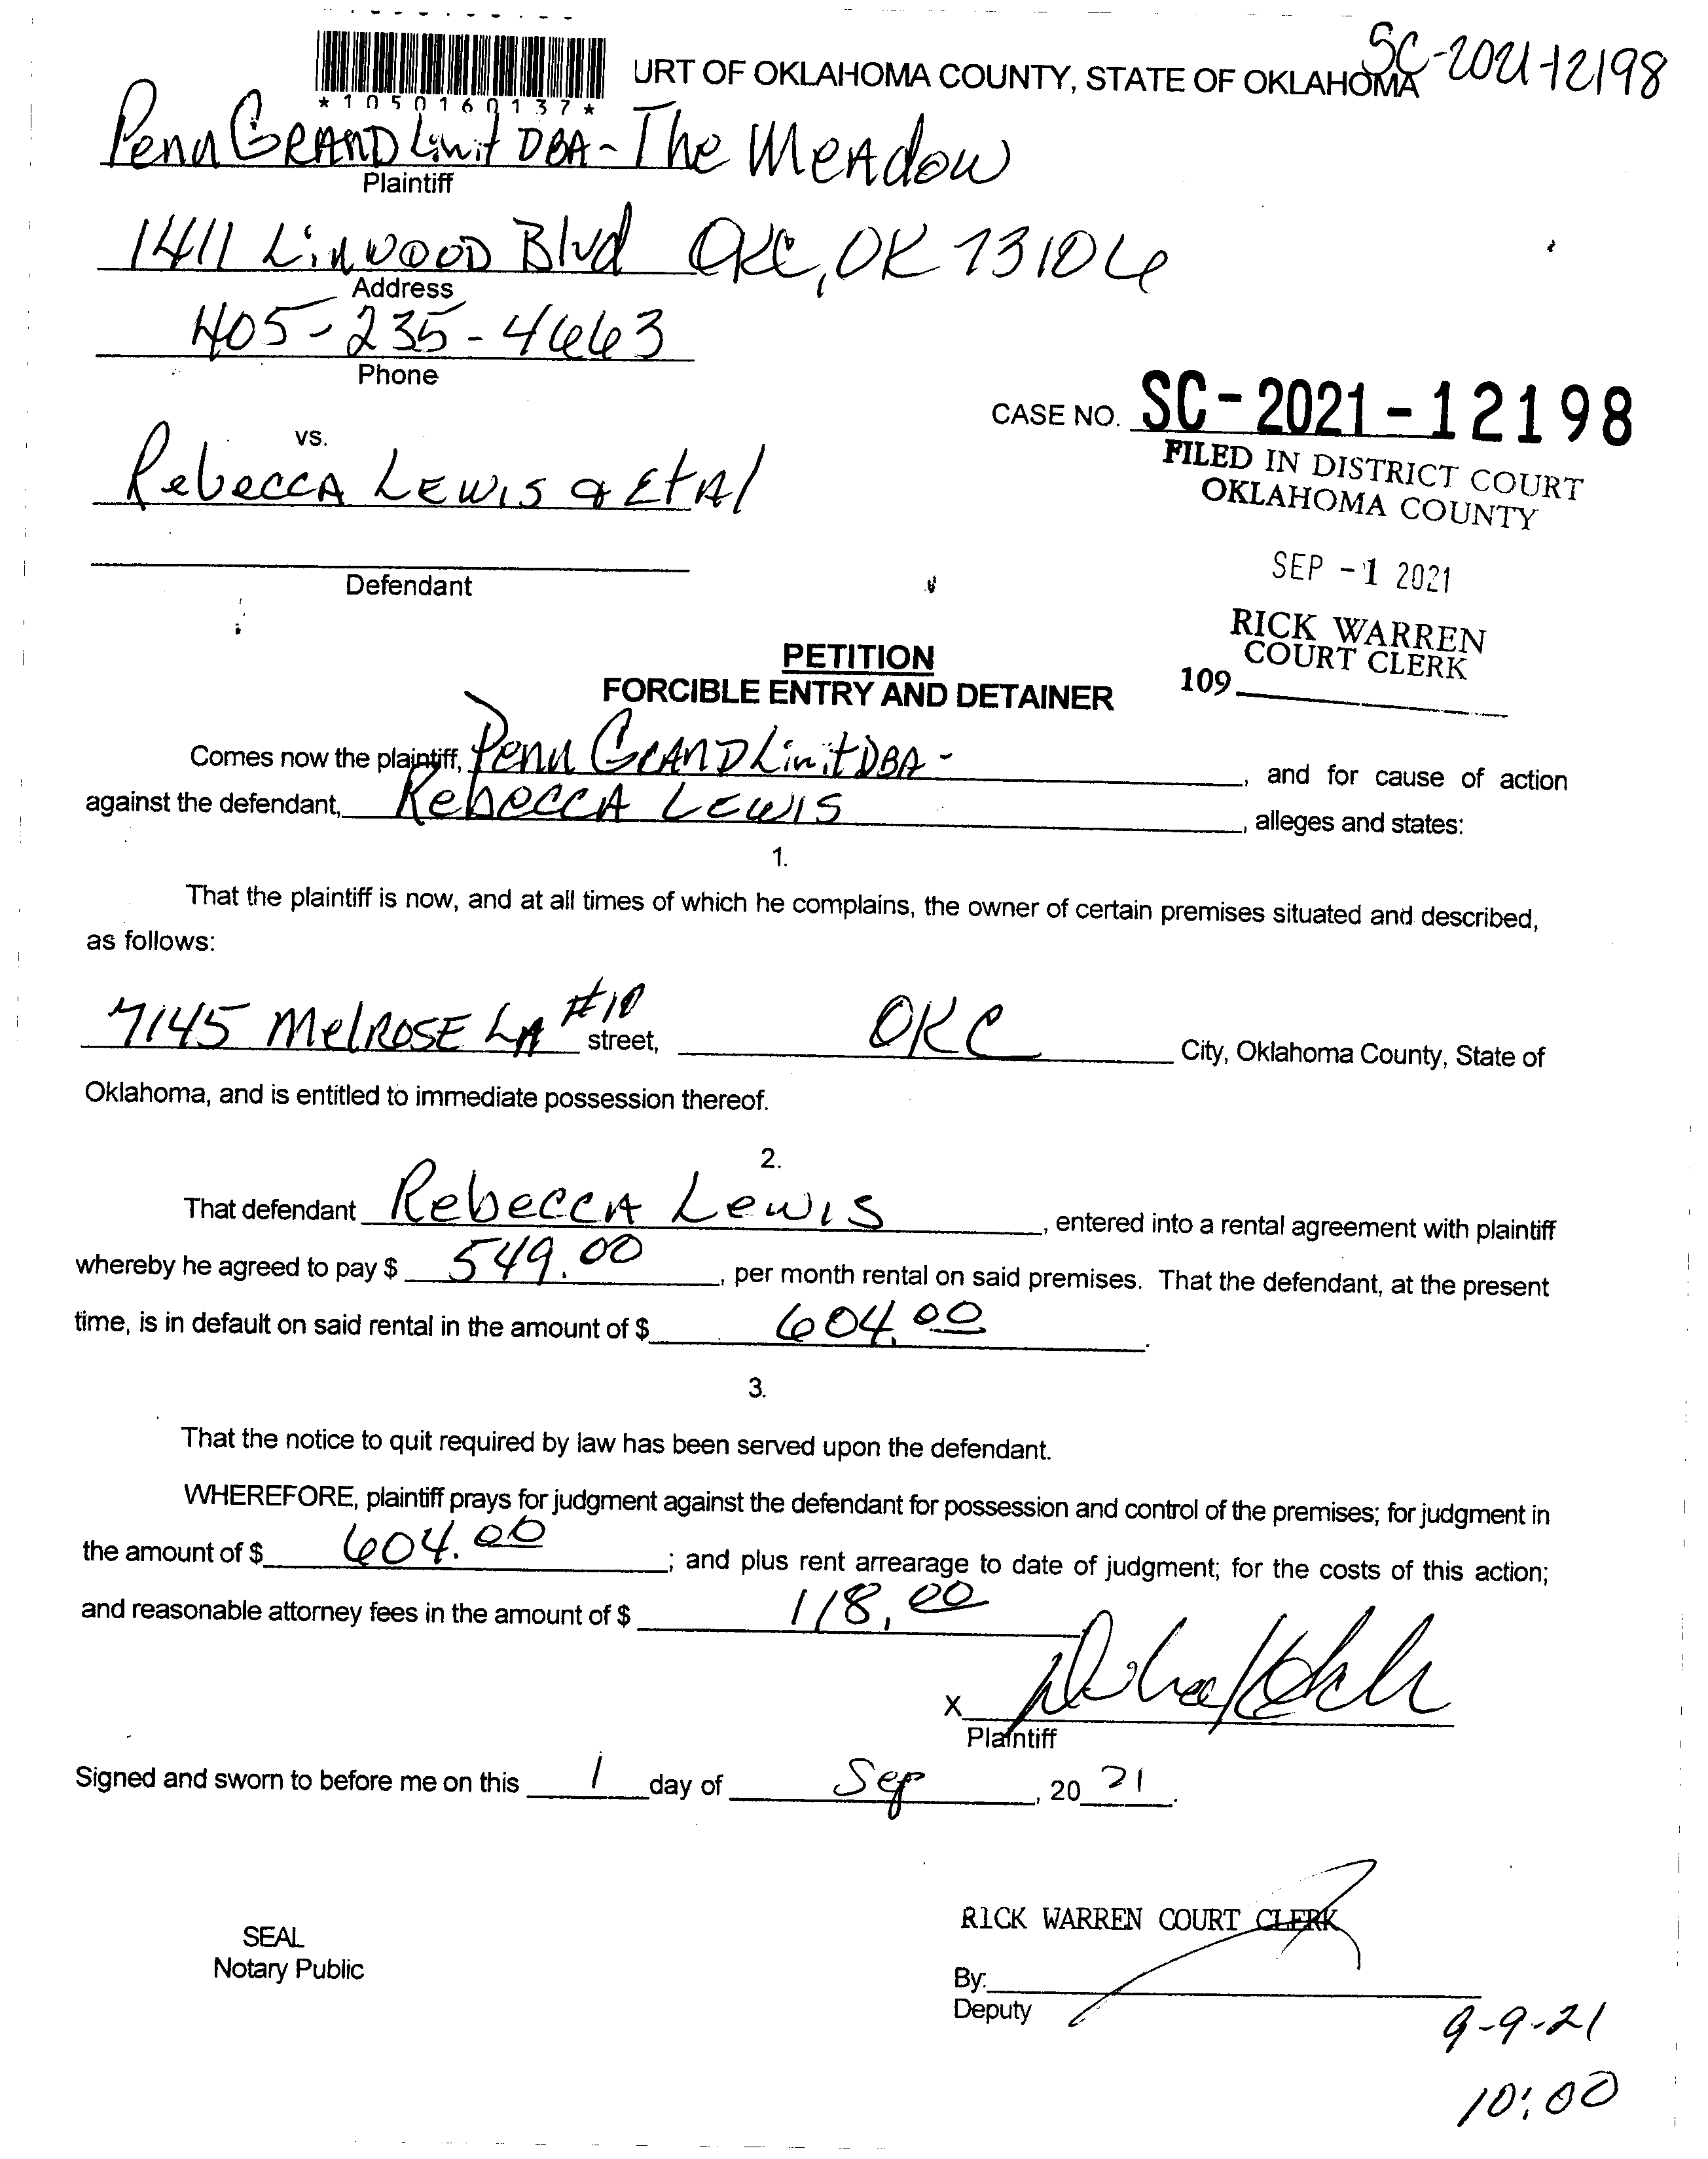 SC-2021-12198
URT OF OKLAHOMA COUNTY, STATE OF OKLAHOMA
*1050160137*
Penn GRAND Limit DBA - The Meadow
Plaintiff
1411 Linwood Blvd OKC, OK 73106
Address
405-235-4663
Phone
CASE NO. SC-2021-12198
FILED IN DISTRICT COURT
OKLAHOMA COUNTY
vs.
Rebecca Lewis & EtAl
SEP -1 2021
Defendant
RICK WARREN
COURT CLERK
109
PETITION
FORCIBLE ENTRY AND DETAINER
Comes now the plaintiff, Penn GRAND Limit DBA - , and for cause of action
against the defendant, Rebecca Lewis , alleges and states:
1.
That the plaintiff is now, and at all times of which he complains, the owner of certain premises situated and described,
as follows:
7145 Melrose Ln #10 street, OKC City, Oklahoma County, State of
Oklahoma, and is entitled to immediate possession thereof.
2.
That defendant Rebecca Lewis , entered into a rental agreement with plaintiff
whereby he agreed to pay $ 549.00 , per month rental on said premises. That the defendant, at the present
time, is in default on said rental in the amount of $ 604.00 .
3.
That the notice to quit required by law has been served upon the defendant.
WHEREFORE, plaintiff prays for judgment against the defendant for possession and control of the premises; for judgment in
the amount of $ 604.00 ; and plus rent arrearage to date of judgment; for the costs of this action;
and reasonable attorney fees in the amount of $ 118.00
X
Plaintiff
Signed and sworn to before me on this 1 day of Sep , 20 21 .
RICK WARREN COURT CLERK
SEAL
Notary Public
By:
Deputy
9-9-21
10:00